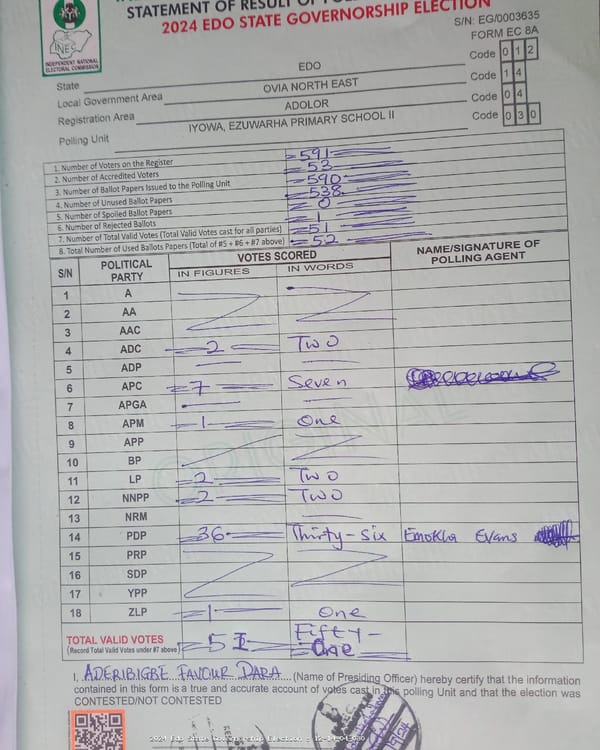 STATEMENT OF RESULT OF
2024 EDO STATE GOVERNORSHIP ELECTION
S/N: EG/0003635
FORM EC 8A
INEC
INDEPENDENT NATIONAL
ELECTORAL COMMISSION
State EDO Code 0 1 2
Local Government Area OVIA NORTH EAST Code 1 4
Registration Area ADOLOR Code 0 4
Polling Unit IYOWA, EZUWARHA PRIMARY SCHOOL II Code 0 3 0
1. Number of Voters on the Register 591
2. Number of Accredited Voters 53
3. Number of Ballot Papers Issued to the Polling Unit 590
4. Number of Unused Ballot Papers 538
5. Number of Spoiled Ballot Papers 0
6. Number of Rejected Ballots 1
7. Number of Total Valid Votes (Total Valid Votes cast for all parties) 51
8. Total Number of Used Ballots Papers (Total of #5 + #6 + #7 above) 52
S/N POLITICAL PARTY VOTES SCORED NAME/SIGNATURE OF POLLING AGENT
IN FIGURES IN WORDS
1 A
2 AA
3 AAC
4 ADC 2 Two
5 ADP
6 APC 7 Seven
7 APGA
8 APM 1 One
9 APP
10 BP
11 LP 2 Two
12 NNPP 2 Two
13 NRM
14 PDP 36 Thirty-six Emokha Evans
15 PRP
16 SDP
17 YPP
18 ZLP 1 One
TOTAL VALID VOTES 51 Fifty-One
(Record Total Valid Votes under #7 above)
I, ADERIBIGBE FAVOUR DARA (Name of Presiding Officer) hereby certify that the information
contained in this form is a true and accurate account of votes cast in this polling Unit and that the election was
CONTESTED/NOT CONTESTED